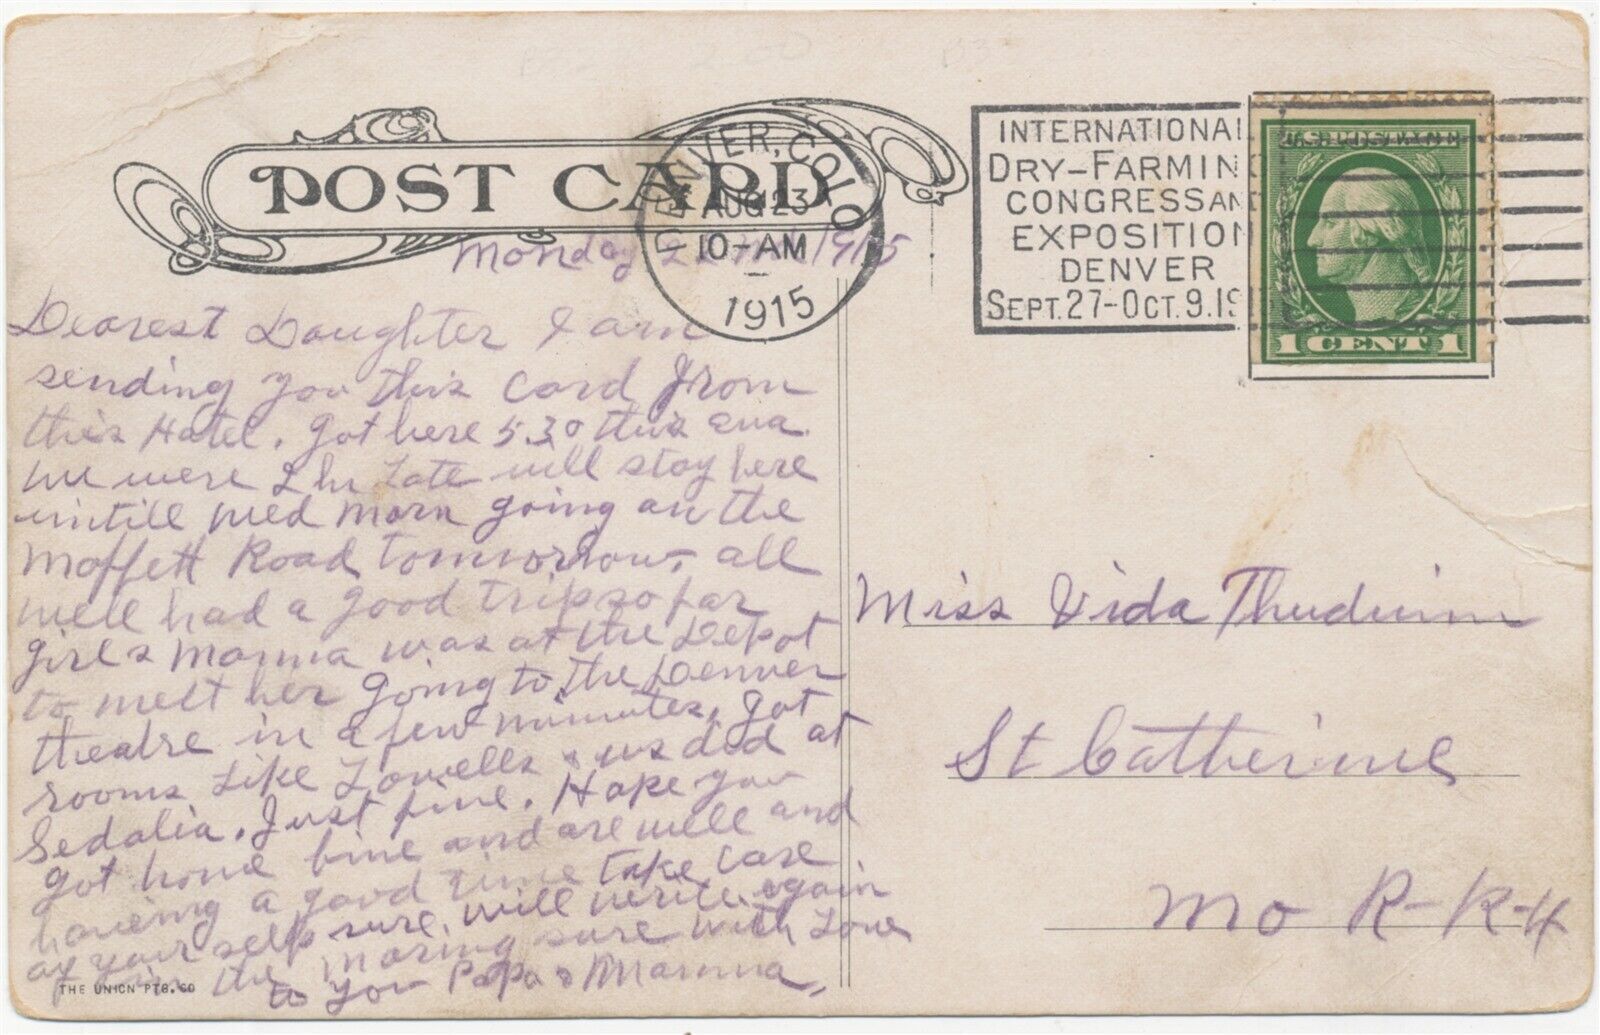 POST CARD
DENVER, COLO
AUG 23
10-AM
1915
INTERNATIONAL
DRY-FARMING
CONGRESS AND
EXPOSITION
DENVER
SEPT. 27-OCT. 9. 19
U.S. POSTAGE
1 CENT 1
Monday 1915
Dearest Daughter I am
sending you this card from
this Hotel. got here 530 this eva
we were 2 hr Late will stay here
untill wed morn going on the
Moffett Road tomorrow, all
well had a good trip so far
girls mamma was at the Depot
to meet her going to the Denver
theatre in a few minutes. got
rooms Like Lowells & us did at
Sedalia. Just fine. Hope you
got home fine and are well and
having a good time take care
of your self sure will write again
in the morning sure with Love
to you Papa & Mamma,
THE UNION PTG. CO
Miss Vida Thudium
St Catherine
Mo R-R-4